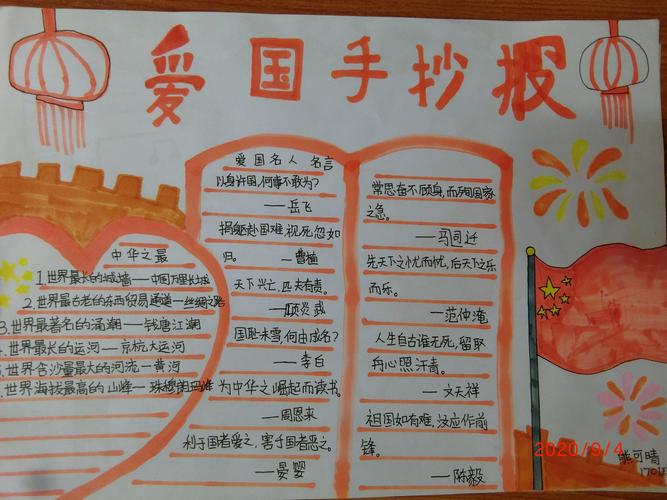 爱国手抄报
爱国名人 名言
以身许国,何事不敢为?
—岳飞
捐躯赴国难,视死忽如
归。 —曹植
天下兴亡,匹夫有责。
—顾炎武
国耻未雪,何由成名?
—李白
为中华之崛起而读书。
—周恩来
利于国者爱之,害于国者恶之。
—晏婴
常思奋不顾身,而殉国家
之急。
—马司迁
先天下之忧而忧,后天下之乐
而乐。
—范仲淹
人生自古谁无死,留取
丹心照汗青。
—文天祥
祖国如有难,汝应作前
锋。
—陈毅
中华之最
1.世界最长的城墙—中国万里长城
2.世界最古老的东西贸易通道—丝绸之路
3.世界最著名的涌潮—钱唐江潮
4.世界最长的运河—京杭大运河
世界含沙量最大的河流—黄河
世界海拔最高的山峰—珠穆朗玛峰
2020/9/4
可晴